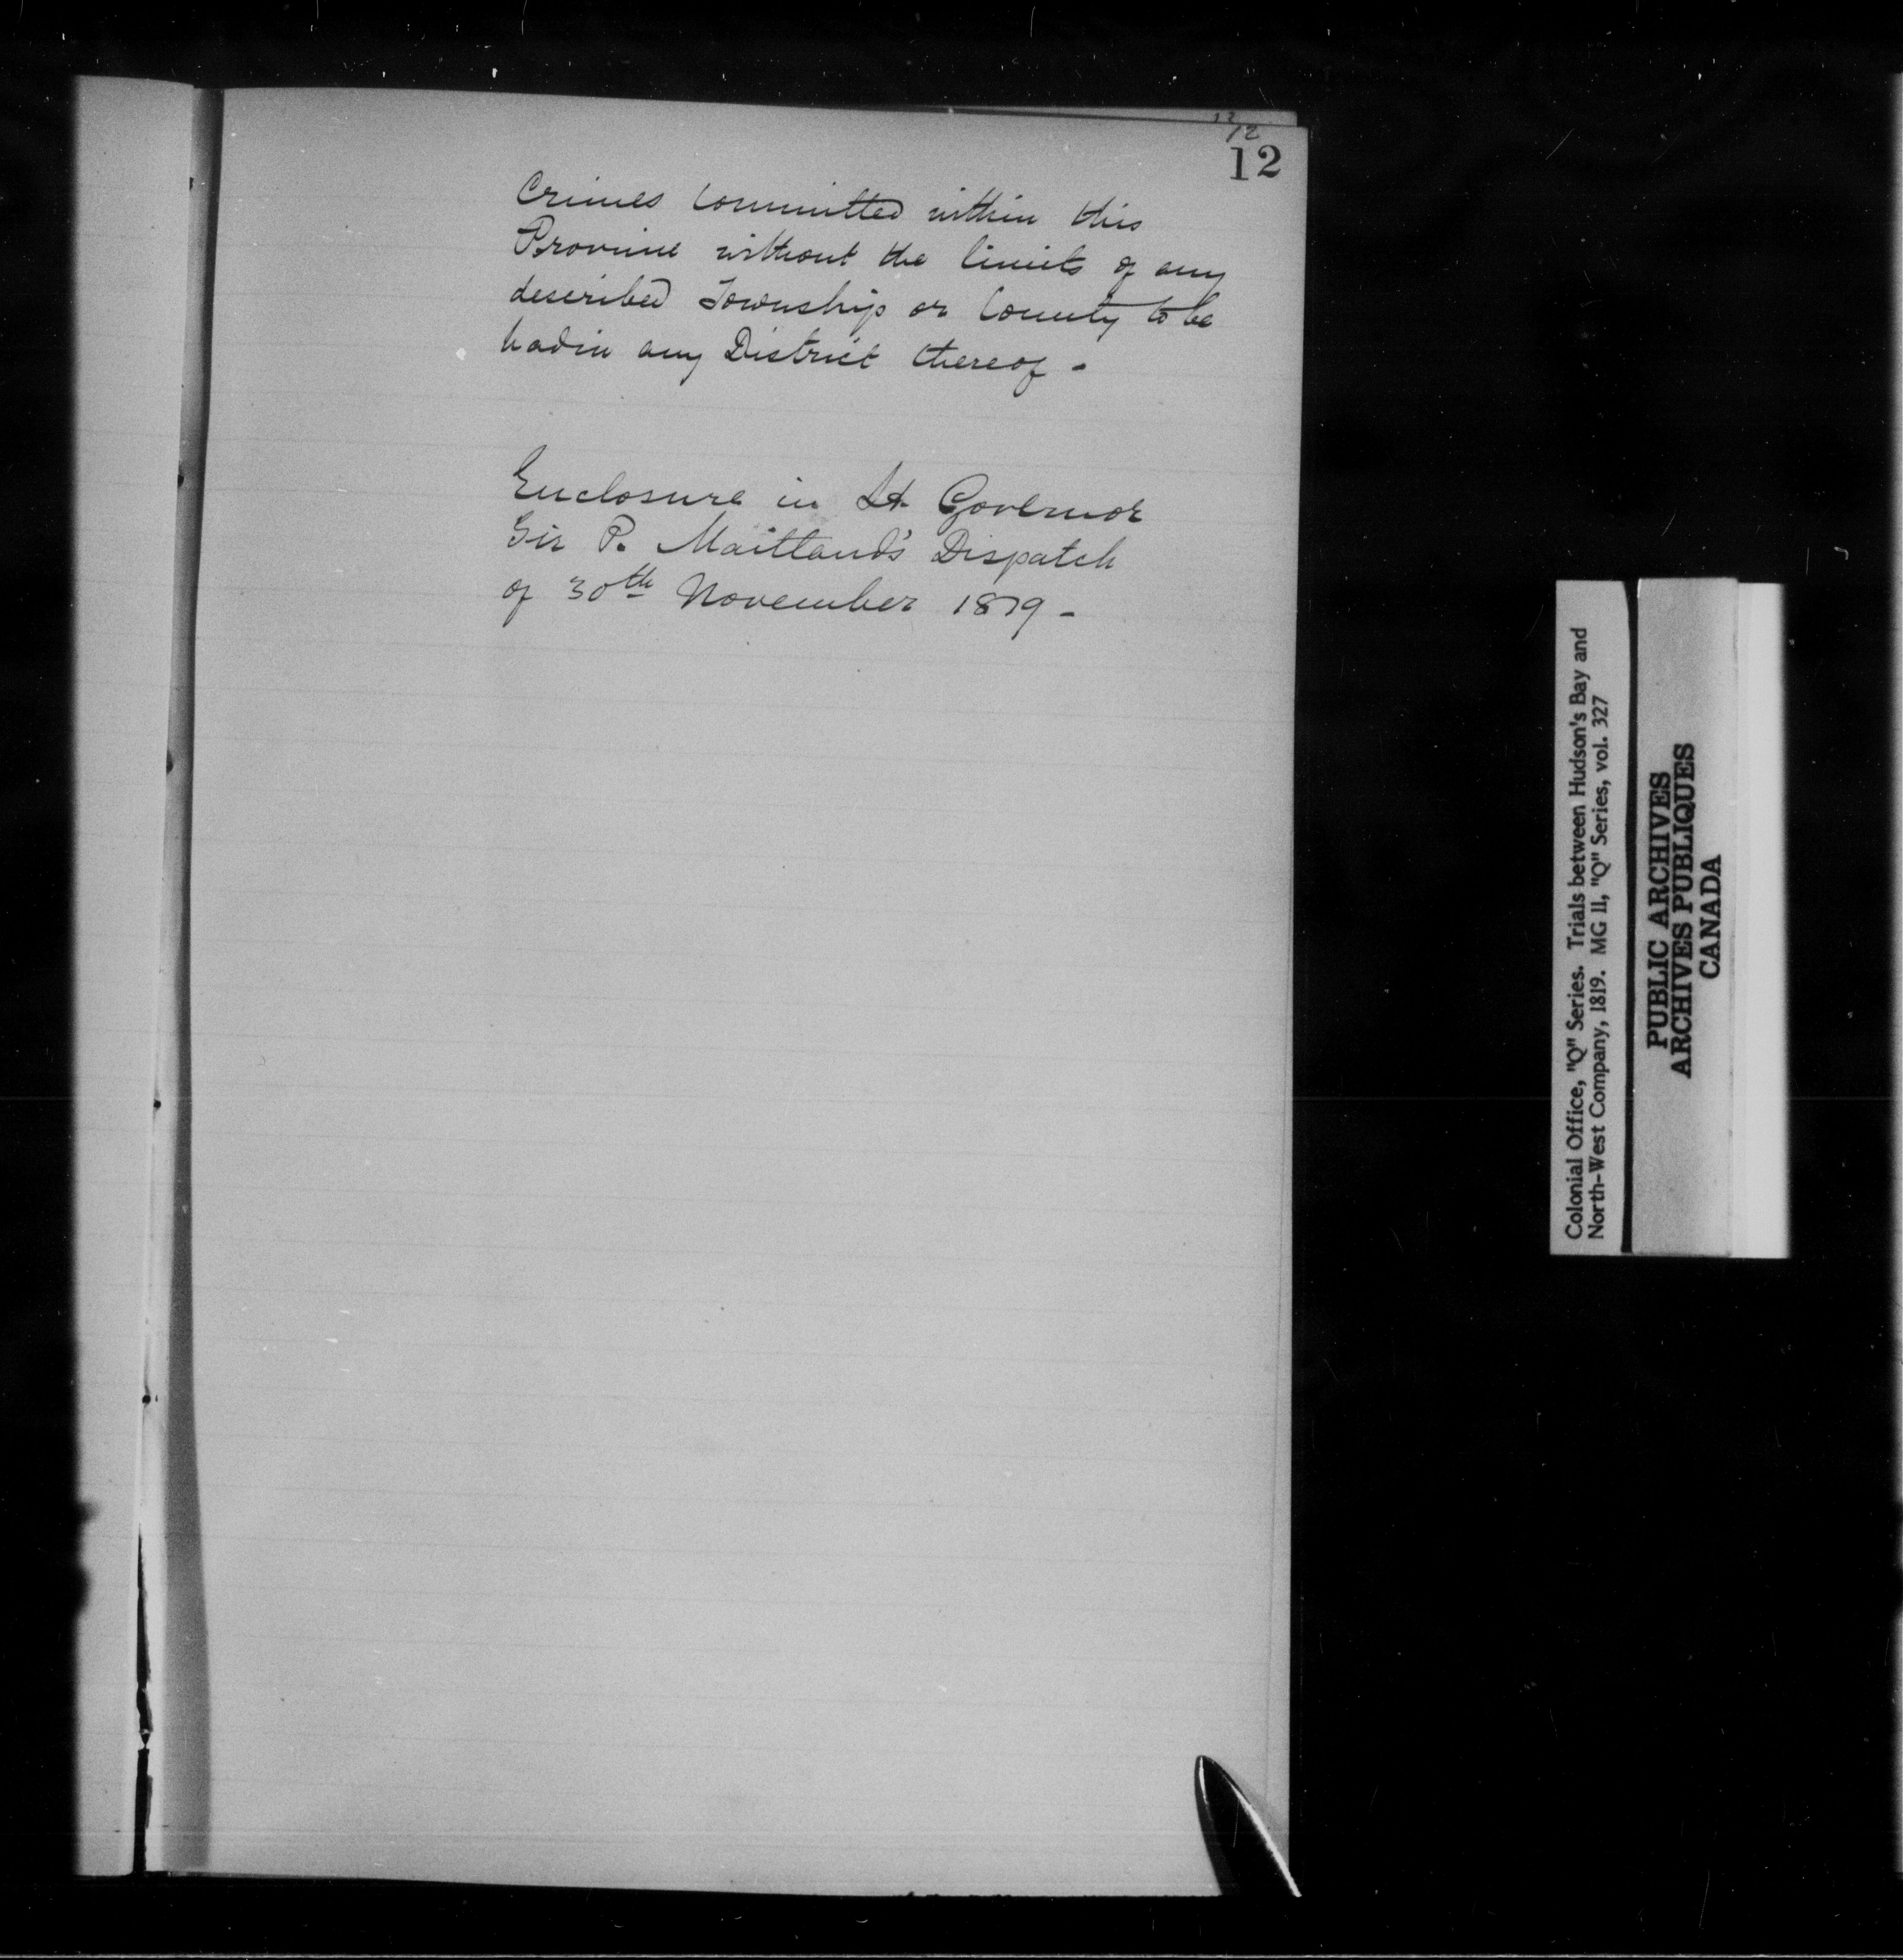 12
12
Crimes committed within this
Province without the limits of any
described Township or County to be
had in any District thereof -
Enclosure in Lt Governor
Sir P. Maitland's Dispatch
of 30th November 1819 -
Colonial Office, "Q" Series. Trials between Hudson's Bay and
North-West Company, 1819. MG 11, "Q" Series, vol. 327
PUBLIC ARCHIVES
ARCHIVES PUBLIQUES
CANADA